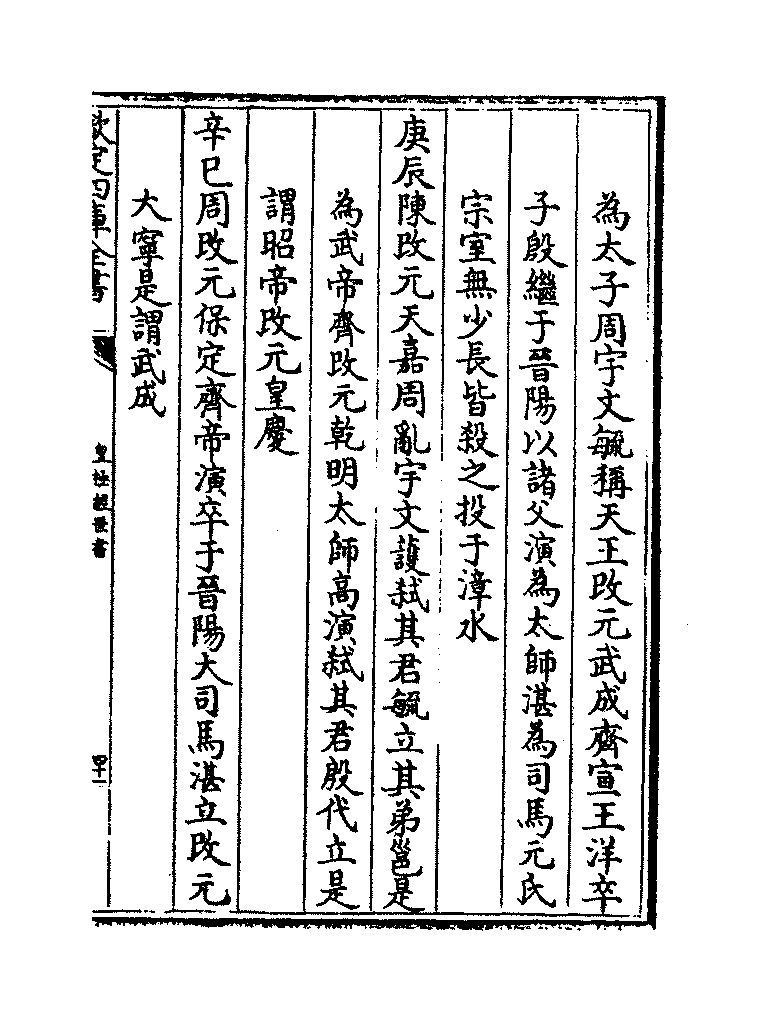 為太子周宇文毓稱天王改元武成齊宣王洋卒
子殷繼于晉陽以諸父演為太師湛為司馬元氏
宗室無少長皆殺之投于漳水
庚辰陳改元天嘉周亂宇文護弑其君毓立其弟邕是
為武帝齊改元乾明太師高演弑其君殷代立是
謂昭帝改元皇慶
辛巳周改元保定齊帝演卒于晉陽大司馬湛立改元
大寧是謂武成
欽定四庫全書
皇極經世書
四十一